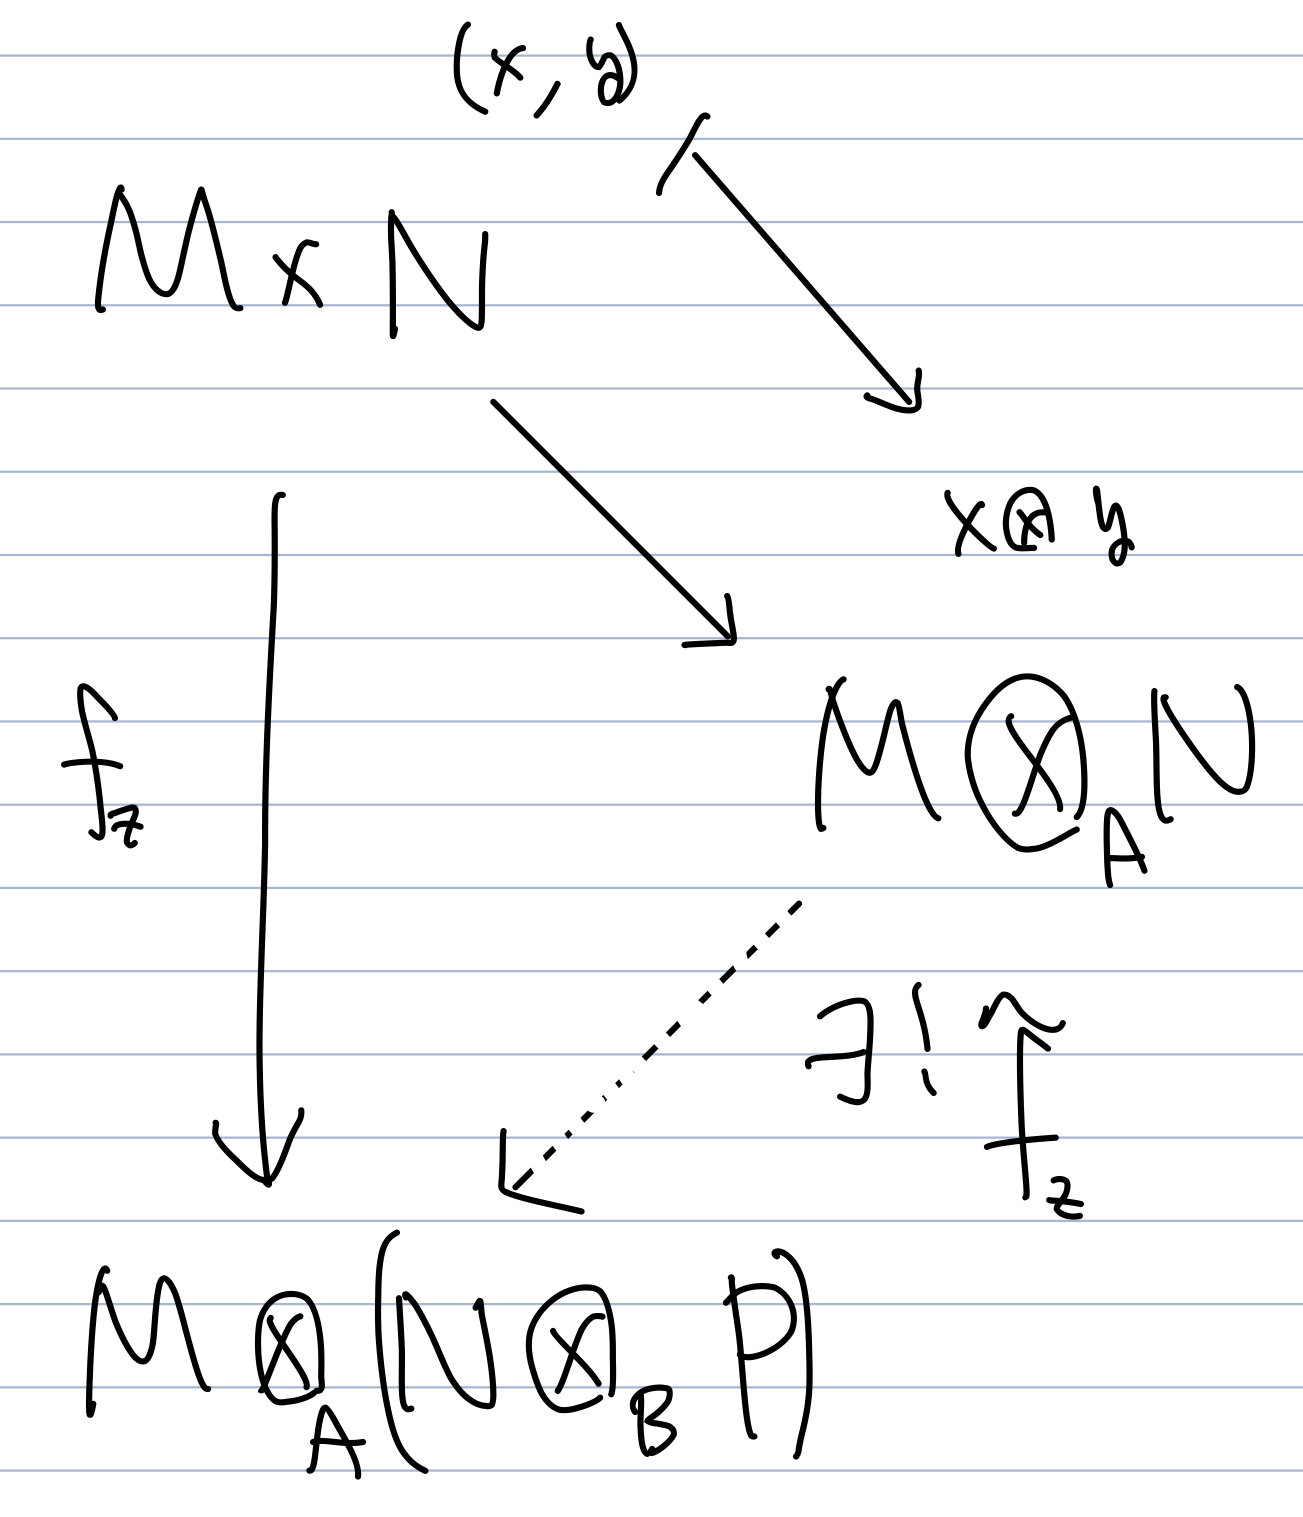 (x, y)
M × N
x ⊗ y
f_z
M ⊗_A N
∃! f̃_z
M ⊗_A (N ⊗_B P)